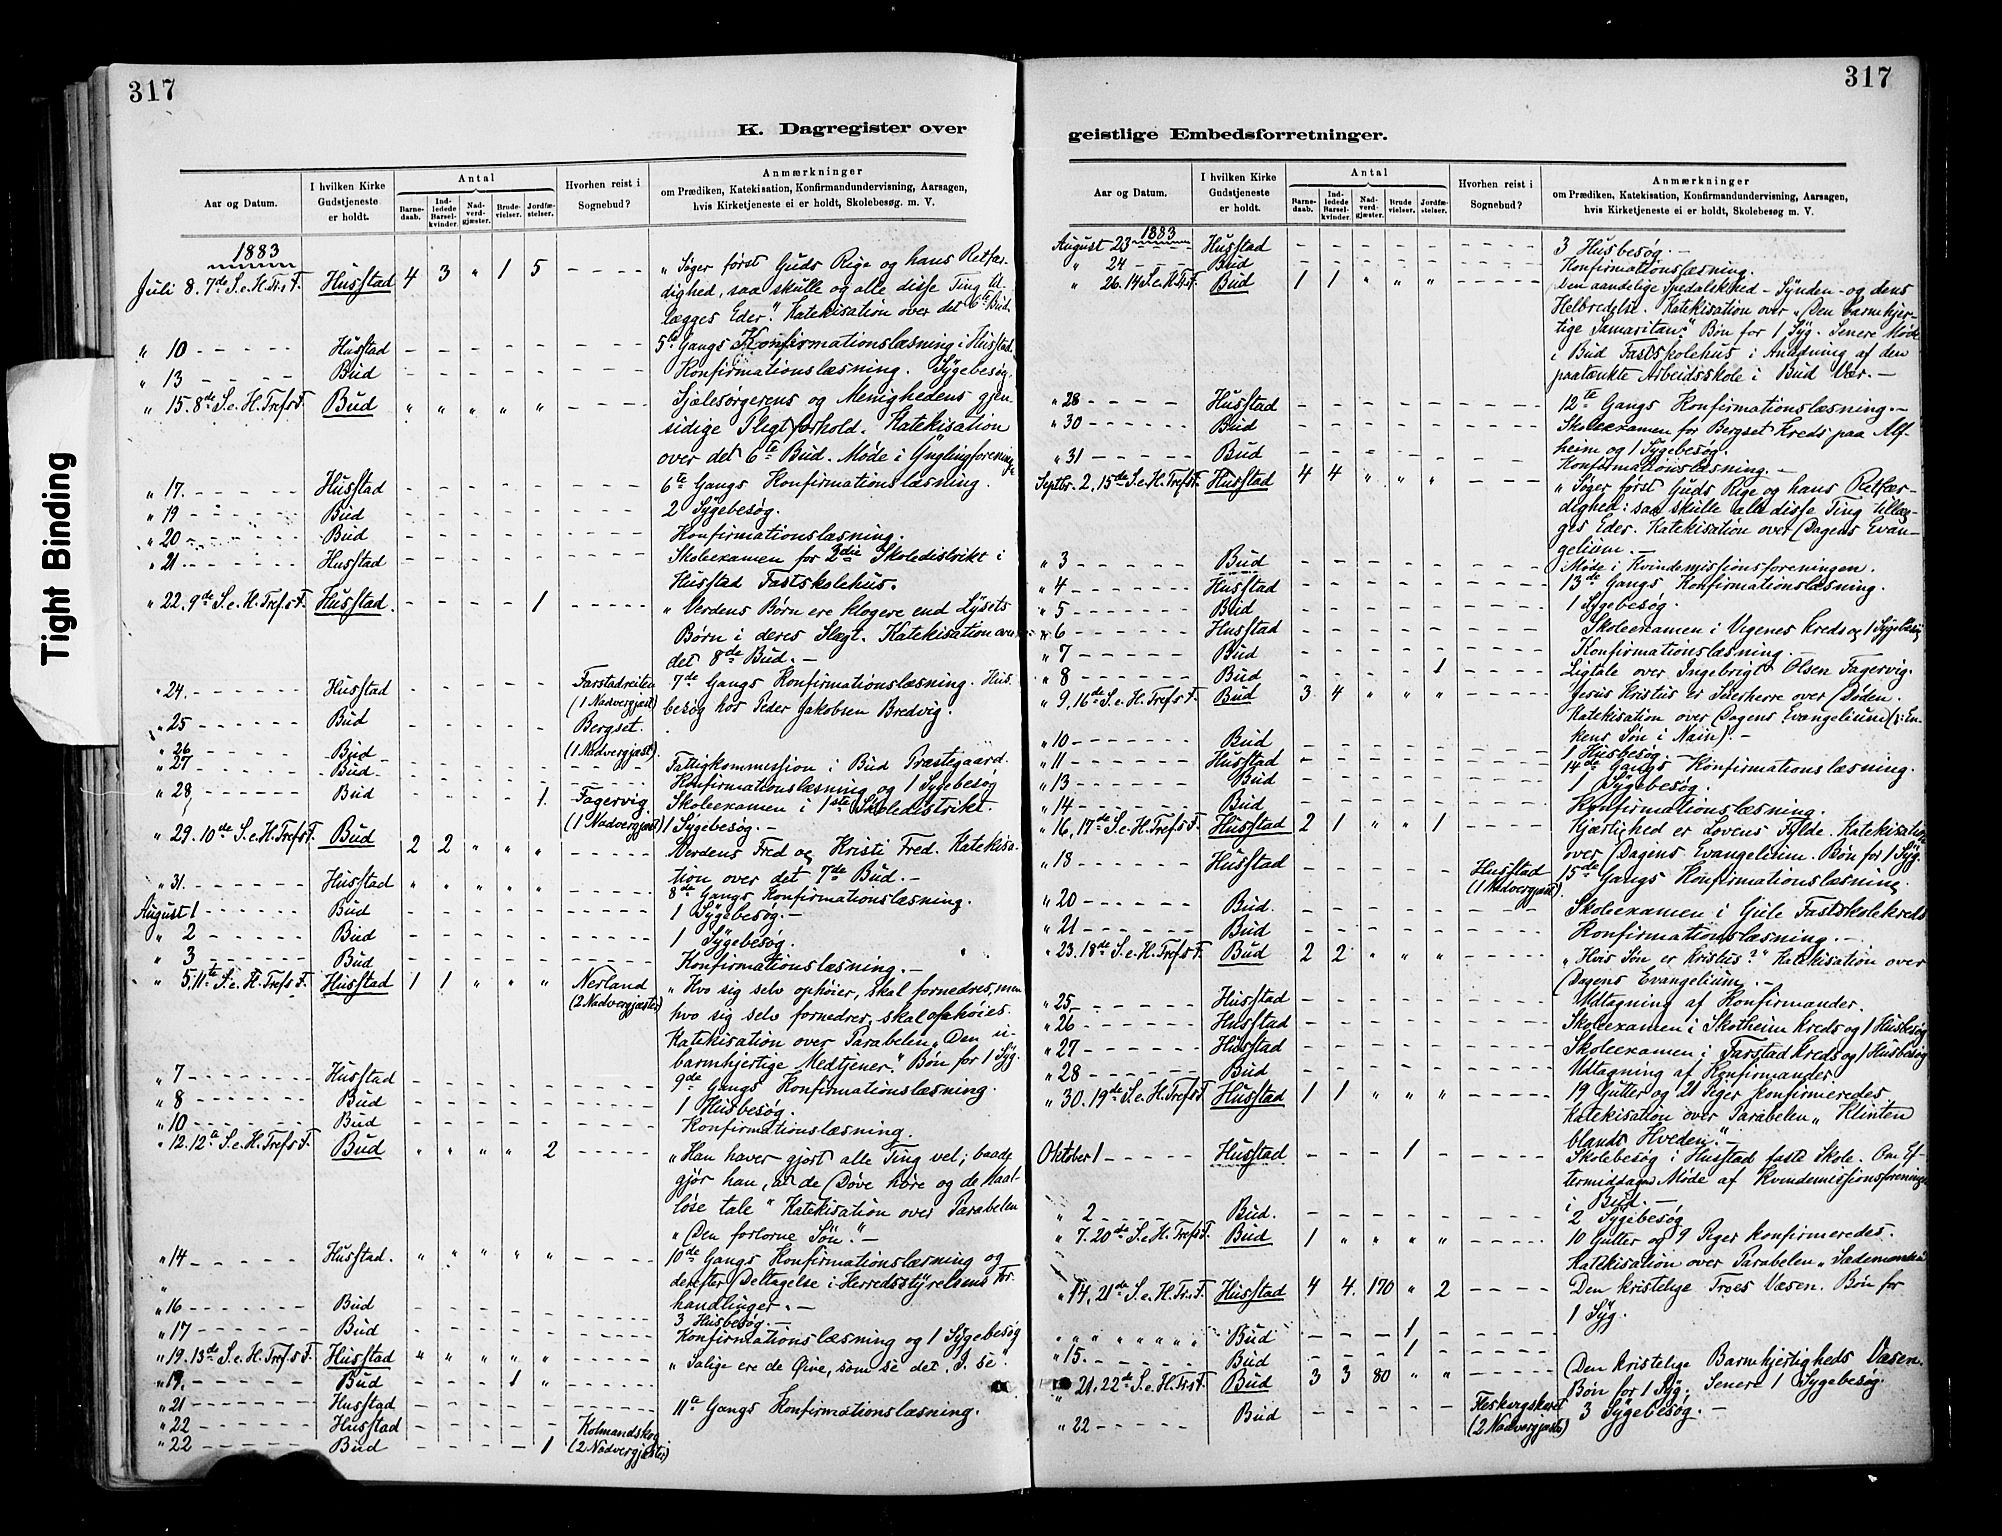 317
K. Dagregister over
Aar og Datum.
I hvilken Kirke Gudstjeneste er holdt.
Antal
Barnedaab.
Indledede Barselkvinder.
Nadverdgjæster.
Brudevielser.
Jordfæstelser.
Hvorhen reist i Sognebud?
Anmærkninger
om Prædiken, Katekisation, Konfirmandundervisning, Aarsagen,
hvis Kirketjeneste ei er holdt, Skolebesøg. m. V.
1883
Juli 8. 7de S. e. H. Tr. F. Husstad 4 3 " 1 5 - - - - „Søger først Guds Rige og hans Retfær-
dighed, saa skulle og alle disse Ting til-
lægges Eder." Katekisation over det 6te Bud.
" 10 - - - - - Husstad 5te Gangs Konfirmationslæsning i Husstad.
" 13 - - - - - Bud Konfirmationslæsning. Sygebesøg.
" 15. 8de S. e. H. Trefs F. Bud " " " " " - - - Sjælesørgerens og Menighedens gjen-
sidige Pligtforhold. Katekisation
over det 6te Bud. Møde i Ynglingforeninge
" 17. - - - - - Husstad 6te Gangs Konfirmationslæsning.
" 19 - - - - - Bud 2 Sygebesøg.
" 20 - - - - - Bud Konfirmationslæsning.
" 21 - - - - - Husstad Skoleexamen for 2die Skoledistrikt i
Husstad Fastskolehus.
" 22. 9de S. e. H. Trefs F. Husstad. - - - - 1 - - - - - „Verdens Børn ere klogere end Lysets
Børn i deres Slægt. Katekisation over
det 8de Bud. -
" 24. - - - - - Husstad Farstadreiten 7de Gangs Konfirmationslæsning. Hus-
(1 Nadvergjæst) besøg hos Peder Jakobsen Bredvig.
" 25 - - - - - Bud Bergset.
(1 Nadvergjæst)
" 26 - - - - - Bud
" 27 - - - - - Bud Fattigkommission i Bud Præstegaard.
Konfirmationslæsning og 1 Sygebesøg
" 28, - - - - - Bud - - - - 1. Fagervig Skoleexamen i 1ste Skoledistrikt.
(1 Nadvergjæst) 1 Sygebesøg. -
" 29. 10de S. e. H. Trefs F. Bud 2 2 " " " - - - - - Verdens Fred og Kristi Fred. Katekisa-
tion over det 7de Bud. -
" 31. - - - - - Husstad " " " " " - - - - - 8de Gangs Konfirmationslæsning.
August 1 - - - - - Bud 1 Sygebesøg. -
" 2 - - - - - Bud 1 Sygebesøg.
" 3 - - - - - Bud Konfirmationslæsning. -
" 5, 11te S. e. H. Trefs F. Husstad 1 1 " " " Nerland „Hvo sig selv ophøier, skal fornedres, men
(2 Nadvergjæster) hvo sig selv fornedrer, skal ophøies.
Katekisation over Parabelen „Den u-
barmhjertige Medtjener." Bøn for 1 Syg.
" 7 - - - - - Husstad 9de Gangs Konfirmationslæsning.
" 8 - - - - - Bud 1 Husbesøg.
" 10 - - - - - Bud Konfirmationslæsning.
" 12. 12te S. e. H. Trefs F. Bud " " " " 2 - - - - - „Han haver gjort alle Ting vel; baade
gjør han, at de Døve høre og de Maal-
løse tale" Katekisation over Parabelen
„Den forlorne Søn". -
" 14 - - - - - Husstad. " " " " " - - - - - 10de Gangs Konfirmationslæsning og
derefter Deltagelse i Herredsstyrelsens For-
handlinger. -
" 16 - - - - - Bud 3 Husbesøg. -
" 17 - - - - - Bud Konfirmationslæsning og 1 Sygebesøg
" 19. 13de S. e. H. Trefs F. Husstad " " " " " - - - - - „Salige ere de Øine, som se det I se"
" 19. - - - - - Bud - - - 1 "
" 21 - - - - - Husstad 11te Gangs Konfirmationslæsning.
" 22 - - - - - Husstad Kolmandskog
" 22 - - - - - Bud - - - - 1 (2 Nadvergjæster)
317
geistlige Embedsforretninger.
Aar og Datum.
I hvilken Kirke Gudstjeneste er holdt.
Antal
Barnedaab.
Indledede Barselkvinder.
Nadverdgjæster.
Brudevielser.
Jordfæstelser.
Hvorhen reist i Sognebud?
Anmærkninger
om Prædiken, Katekisation, Konfirmandundervisning, Aarsagen,
hvis Kirketjeneste ei er holdt, Skolebesøg. m. V.
1883
August 23 - - - - Husstad 3 Husbesøg. -
" 24 - - - - Bud Konfirmationslæsning.
" 26. 14 S. e. H. Tr. F. Bud 1 1 " " " - - - - - Den aandelige Spedalskhed - Synden - og dens
Helbredelse. Katekisation over „Den barmhjer-
tige Samaritan." Bøn for 1 Syg. Senere Møde
i Bud Fastskolehus i Anledning af den
paatænkte Arbeidsskole i Bud Vær. -
" 28 - - - - Husstad 12te Gangs Konfirmationslæsning. -
" 30 - - - - Bud Skoleexamen for Bergset Kreds paa Alf-
heim og 1 Sygebesøg.
" 31 - - - - Bud Konfirmationslæsning. -
Septbr. 2. 15de S. e. H. Trefs F. Husstad 4 4 " " " - - - - - „Søger først Guds Rige og hans Retfær-
dighed: saa skulle alle disse Ting tillæg-
ges Eder. Katekisation over Dagens Evan-
gelium. -
" 3 - - - - Bud Møde i Kvindemissionsforeningen.
" 4 - - - - Husstad 13de Gangs Konfirmationslæsning.
" 5 - - - - Bud 1 Sygebesøg.
" 6 - - - - Husstad Skoleexamen i Vigenes Kreds og 1 Sygebesøg
" 7 - - - - Bud Konfirmationslæsning.
" 8 - - - - Bud - - - - 1 Ligtale over Ingebrigt Olsen Fagervig.
" 9. 16de S. e. H. Trefs F. Bud 3 4 " " " - - - - - Jesus Kristus er Seierherre over Døden.
Katekisation over Dagens Evangelium (: En-
kens Søn i Nain). -
" 10 - - - - Bud 1 Husbesøg
" 11 - - - - Husstad 14de Gangs Konfirmationslæsning.
" 13 - - - - Bud 1 Sygebesøg.
" 14 - - - - Bud Konfirmationslæsning.
" 16, 17de S. e. H. Trefs F. Husstad 2 1 " " 1 - - - - - Kjærlighed er Lovens Fylde. Katekisation
over Dagens Evangelium. Bøn for 1 Syg.
" 18 - - - - Husstad Husstad 15de Gangs Konfirmationslæsning.
(1 Nadvergjæst)
" 20 - - - - Bud. Skoleexamen i Gule Fastskolekreds
" 21 - - - - Bud Konfirmationslæsning. -
" 23. 18de S. e. H. Trefs F. Bud 2 2 " " " - - - - - „Hvis Søn er Kristus?" Katekisation over
Dagens Evangelium. -
" 25 - - - - Husstad Udtagning af Konfirmander.
" 26 - - - - Husstad Skoleexamen i Skotheim Kreds og 1 Husbesøg
" 27 - - - - Husstad Skoleexamen i Farstad Kreds og 1 Husbesøg
" 28 - - - - Bud Udtagning af Konfirmander
" 30. 19de S. e. H. Trefs F. Husstad 1 1 " " " - - - - 19 Gutter og 21 Piger konfirmeredes.
Katekisation over Parabelen „Klinten
blandt Hveden." -
Oktober 1 - - - - Husstad - - - 1 - Skolebesøg i Husstad faste Skole. Om Ef-
termiddagen Møde af Kvindemissionsforeningen
i Bud -
" 2 - - - - Bud. 2 Sygebesøg
" 7. 20de S. e. H. Trefs F. Bud 1 " " " " - - - - 10 Gutter og 9 Piger konfirmeredes.
Katekisation over Parabelen „Sædemanden
" 14, 21de S. e. H. Tr. F. Husstad 4 4. 170 " 2 - - - - Den kristelige Troes Væsen. Bøn for
1 Syg.
" " " " " " Bud - - - 1 -
" 15. - - - - Bud - - - 1 -
" 21, 22de S. e. H. Trs F. Bud 3 3 80 " " - - - - Den kristelige Barmhjertigheds Væsen.
Bøn for 1 Syg; Senere 1 Sygebesøg.
" 22 - - - - Bud 3 Sygebesøg. -
(2 Nadvergjæster)
Tight Binding